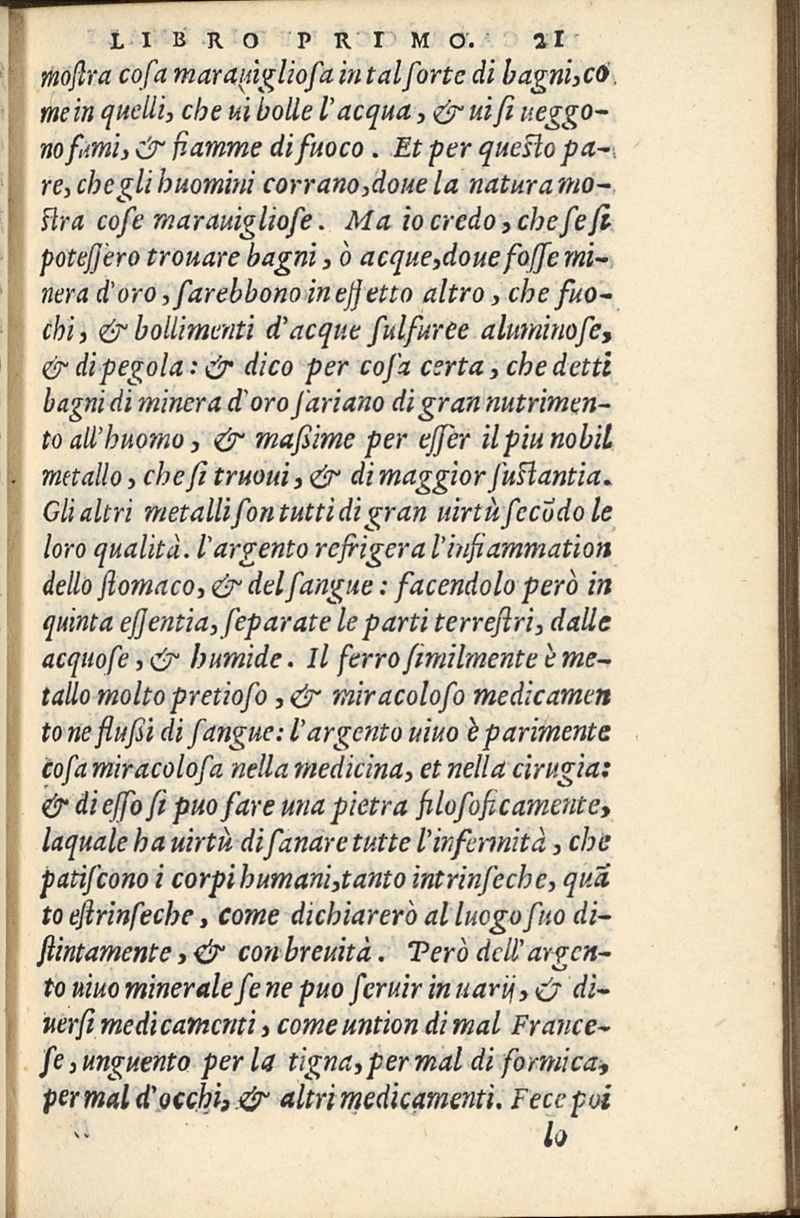 LIBRO PRIMO. 21
moſtra coſa marauiglioſa in tal ſorte di bagni, co
me in quelli, che ui bolle l'acqua, & ui ſi ueggo-
no fumi, & fiamme di fuoco. Et per queſto pa-
re, che gli huomini corrano, doue la natura mo-
ſtra coſe marauiglioſe. Ma io credo, che ſe ſi
poteſſero trouare bagni, ò acque, doue foſſe mi-
nera d'oro, ſarebbono in effetto altro, che fuo-
chi, & bollimenti d'acque ſulfuree aluminoſe,
& di pegola: & dico per coſa certa, che detti
bagni di minera d'oro ſariano di gran nutrimen-
to all'huomo, & maßime per eſſer il piu nobil
metallo, che ſi truoui, & di maggior ſuſtantia.
Gli altri metalli ſon tutti di gran uirtù ſecõdo le
loro qualità. l'argento refrigera l'infiammation
dello ſtomaco, & del ſangue: facendolo però in
quinta eſſentia, ſeparate le parti terreſtri, dalle
acquoſe, & humide. Il ferro ſimilmente è me-
tallo molto pretioſo, & miracoloſo medicamen
to ne flußi di ſangue: l'argento uiuo è parimente
coſa miracoloſa nella medicina, et nella cirugia:
& di eſſo ſi puo fare una pietra filoſoficamente,
laquale ha uirtù di ſanare tutte l'infermità, che
patiſcono i corpi humani, tanto intrinſeche, quã
to eſtrinſeche, come dichiarerò al luogo ſuo di-
ſtintamente, & con breuità. Però dell'argen-
to uiuo minerale ſe ne puo ſeruir in uarij, & di-
uerſi medicamenti, come untion di mal France-
ſe, unguento per la tigna, per mal di formica,
per mal d'occhi, & altri medicamenti. Fece poi
lo